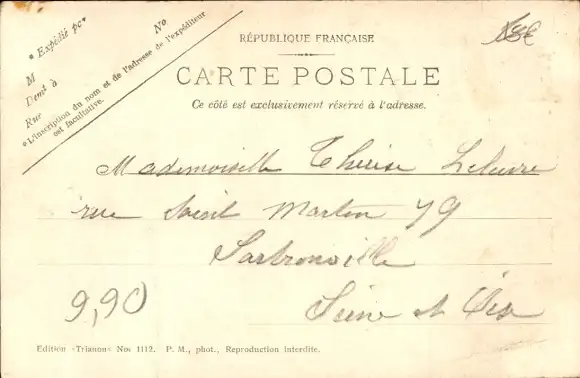 * Expédié pr*
M
Demt à
No
Rue
*L'inscription du nom et de l'adresse de l'expéditeur
est facultative.
RÉPUBLIQUE FRANÇAISE
CARTE POSTALE
Ce côté est exclusivement réservé à l'adresse.
Mademoiselle Thérèse Lelievre
rue Saint Martin 79
Sartrouville
Seine et Oise
9,90
Edition «Trianon» Nos 1112. P. M., phot., Reproduction interdite.